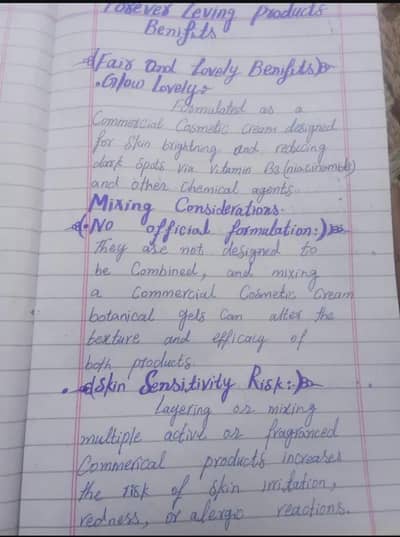 Forever Leving Products
Benifits
(Fair and Lovely Benifits)
•Glow Lovely:
Formulated as a
Commercial Cosmetic cream designed
for skin brightning and reducing
dark spots via vitamin B3 (niacinamide)
and other chemical agents.
Mixing Considerations.
(•No official formulation:)
They are not designed to
be Combined, and mixing
a Commercial Cosmetic Cream
botanical gels Can alter the
texture and efficacy of
both products.
•(Skin Sensitivity Risk:)
Layering or mixing
multiple active or fragranced
Commerical products increases
the risk of skin irritation,
redness, or alergic reactions.